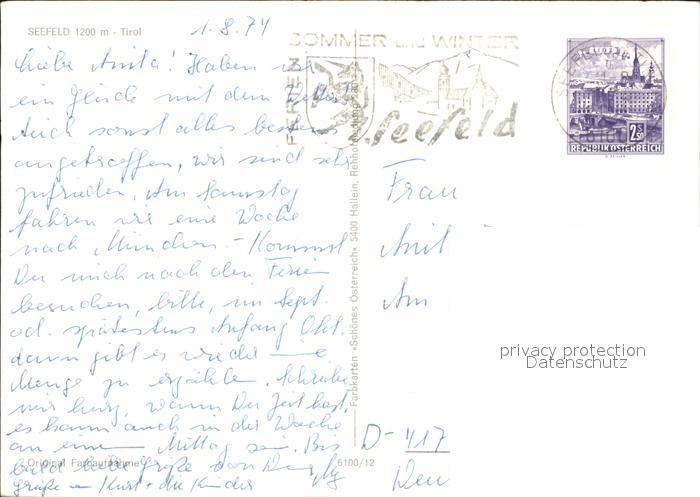 SEEFELD 1200 m - Tirol
1.8.74
SOMMER und WINTER
FERIEN
Seefeld
2.50
REPUBLIK ÖSTERREICH
Liebe Anita! Haben wir
ein Glück mit dem Wetter!
Auch sonst alles bestens
angetroffen, wir sind sehr
zufrieden. Am Samstag
fahren wir eine Woche
nach München. - Kommst
Du mich nach den Ferien
besuchen, bitte, im Sept.
od. spätestens Anfang Okt.
dann gibt es wieder eine
Menge zu erzählen. Schreibe
mir kurz, wann Du Zeit hast,
es kann auch in der Woche
an einem Mittag sein. Bis
bald liebe Grüße von Deiner
Grüße Kurt + die Kinder
Original Farbaufnahme
6100/12
Farbkarten »Schönes Österreich« 5400 Hallein, Rehhofsiedlung
Frau
Anit
Am
D-417
privacy protection
Datenschutz